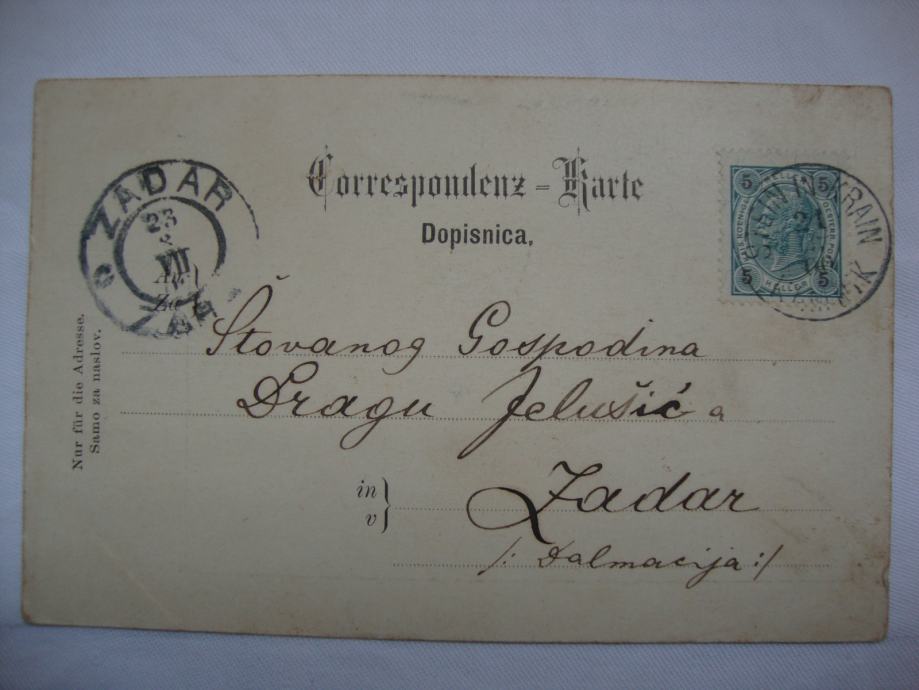 Correspondenz=Karte
Dopisnica,
ZADAR
23
VII
5 HELLER 5
5 HELLER 5
KRAIN
Nur für die Adresse.
Samo za naslov.
An
Za
Štovanog Gospodina
Dragu Jelušić a
in
v
Zadar
/: Dalmacija :/